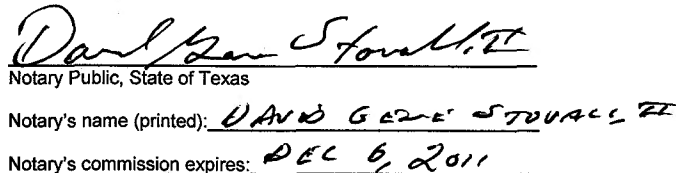 David Gene Stovall, II
Notary Public, State of Texas
Notary's name (printed): DAVID GENE STOVALL II
Notary's commission expires: DEC 6, 2011